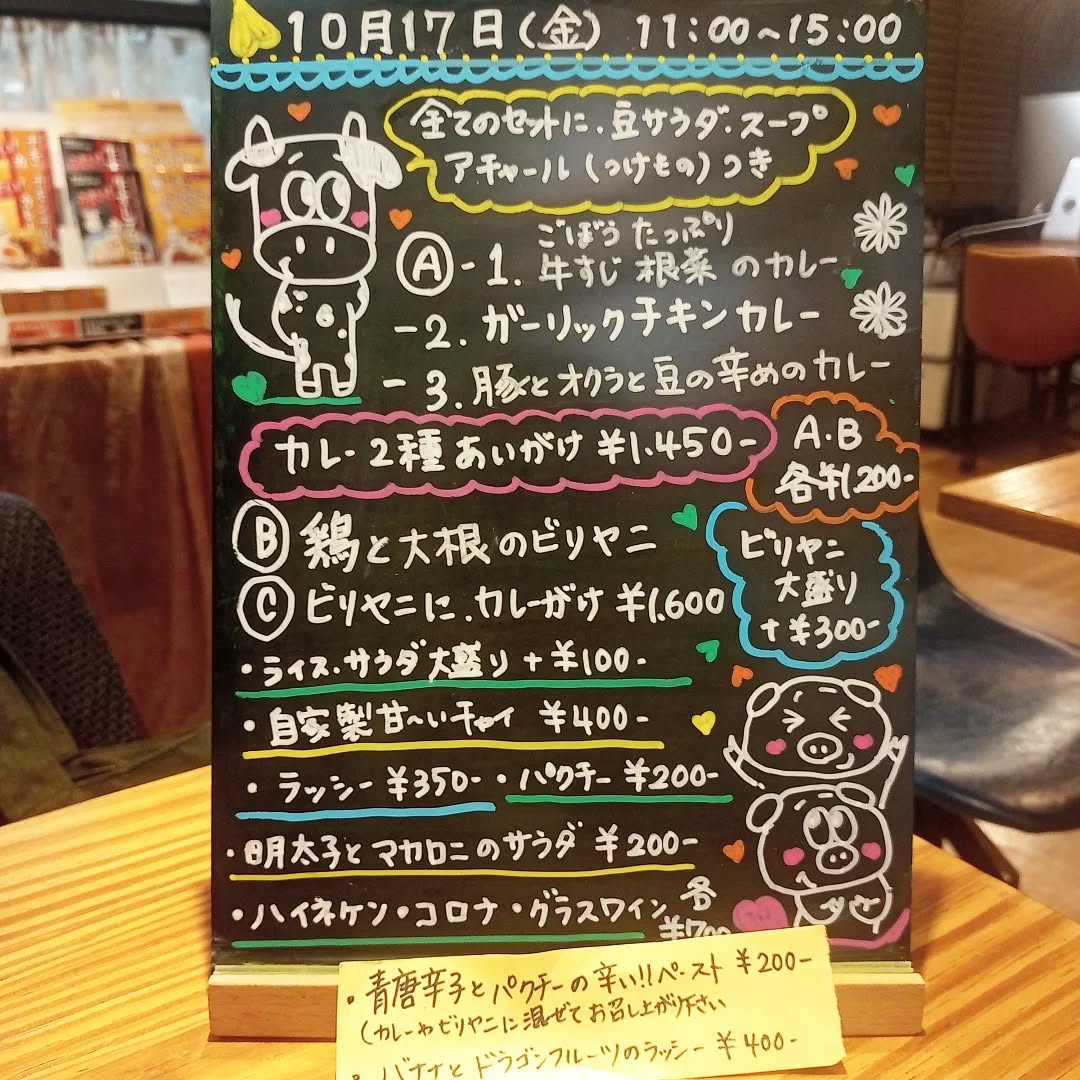 10月17日(金) 11:00~15:00
全てのセットに.豆サラダ.スープ
アチャール(つけもの)つき
ごぼうたっぷり
Ⓐ-1. 牛すじ根菜のカレー
-2. ガーリックチキンカレー
-3. 豚とオクラと豆の辛めのカレー
カレー2種あいがけ ¥1.450-
A.B
各¥1.200-
Ⓑ 鶏と大根のビリヤニ
Ⓒ ビリヤニに.カレーがけ ¥1.600
ビリヤニ
大盛り
+¥300-
・ライス.サラダ大盛り+¥100-
・自家製甘~いチャイ ¥400-
・ラッシー ¥350- ・パクチー ¥200-
・明太子とマカロニのサラダ ¥200-
・ハイネケン・コロナ・グラスワイン 各
¥700
・青唐辛子とパクチーの辛い!!ペースト ¥200-
(カレーやビリヤニに混ぜてお召し上がり下さい
・バナナとドラゴンフルーツのラッシー ¥400-